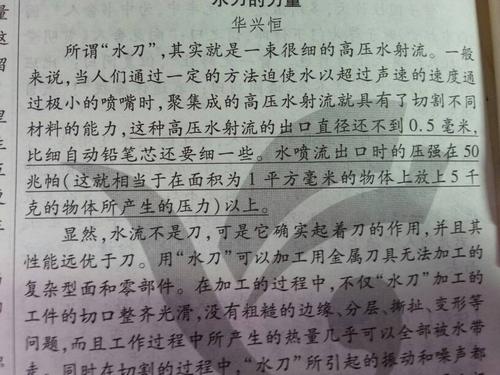 水刀的力量
华兴恒
所谓“水刀”,其实就是一束很细的高压水射流。一般
来说,当人们通过一定的方法迫使水以超过声速的速度通
过极小的喷嘴时,聚集成的高压水射流就具有了切割不同
材料的能力,这种高压水射流的出口直径还不到0.5毫米,
比细自动铅笔芯还要细一些。水喷流出口时的压强在50
兆帕(这就相当于在面积为1平方毫米的物体上放上5千
克的物体所产生的压力)以上。
显然,水流不是刀,可是它确实起着刀的作用,并且其
性能远优于刀。用“水刀”可以加工用金属刀具无法加工的
复杂型面和零部件。在加工的过程中,不仅“水刀”加工的
工件的切口整齐光滑,没有粗糙的边缘、分层、撕扯、变形等
问题,而且工作过程中所产生的热量几乎可以全部被水带
走。同时在切割的过程中,“水刀”所引起的振动和噪声都